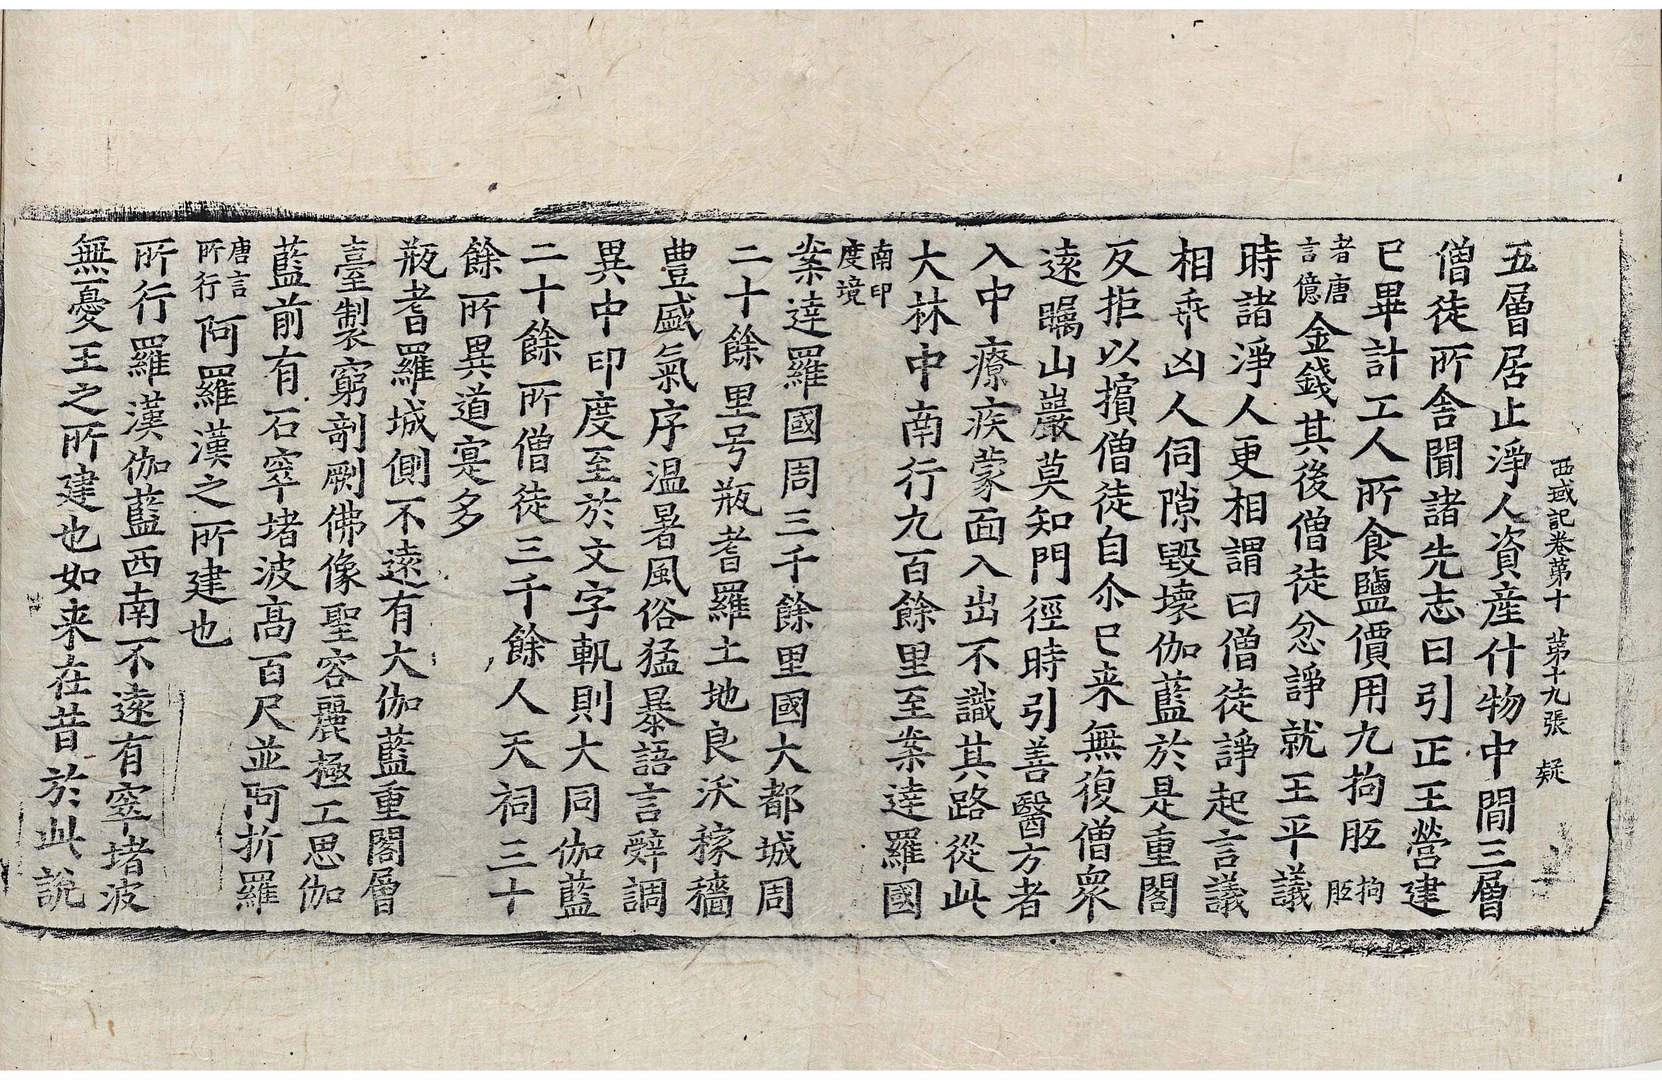 西域記卷第十 第十九張 疑
五層居止淨人資產什物中間三層
僧徒所舍聞諸先志曰引正王營建
已畢計工人所食鹽價用九拘胝拘胝
者唐言億金錢其後僧徒忿諍就王平議
時諸淨人更相謂曰僧徒諍起言議
相乖凶人伺隙毀壞伽藍於是重閣
反拒以擯僧徒自尒已来無復僧衆
遠矚山巖莫知門徑時引善醫方者
入中療疾蒙面入出不識其路從此
大林中南行九百餘里至案達羅國
南印度境
案達羅國周三千餘里國大都城周
二十餘里号瓶耆羅土地良沃稼穡
豊盛氣序温暑風俗猛暴語言辭調
異中印度至於文字軌則大同伽藍
二十餘所僧徒三千餘人天祠三十
餘所異道寔多
瓶耆羅城側不遠有大伽藍重閣層
臺製窮剞劂佛像聖容麗極工思伽
藍前有石窣堵波高百尺並阿折羅
唐言所行阿羅漢之所建也
所行羅漢伽藍西南不遠有窣堵波
無憂王之所建也如来在昔於此說